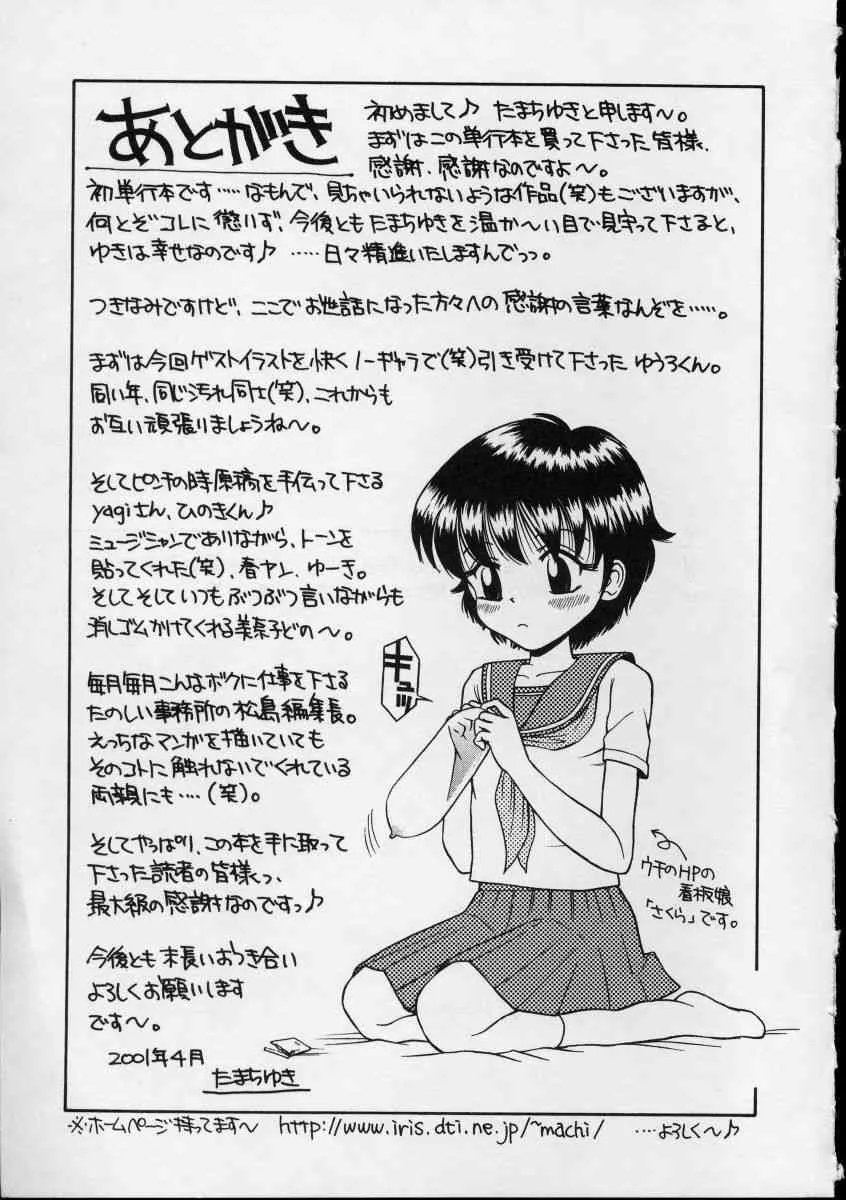 あとがき
初めまして♪ たまちゆきと申します〜。
まずはこの単行本を買って下さった皆様、
感謝、感謝なのですよ〜。
初単行本です‥‥なもんで、見ちゃいられないような作品(笑)もございますが、
何とぞコレに懲りず、今後とも たまちゆきを 温か〜い目で見守って下さると、
ゆきは幸せなのです♪ ‥‥日々精進いたしますんでっっ。
つきなみですけど、ここでお世話になった方々への感謝の言葉なんぞを‥‥。
まずは今回ゲストイラストを快くノーギャラで(笑)引き受けて下さった ゆうろくん。
同い年、同じ汚れ同士(笑)、これからも
お互い頑張りましょうね〜。
そしてピンチの時原稿を手伝って下さる
yagiさん、ひのきくん♪
ミュージシャンでありながら、トーンを
貼ってくれた(笑)、春ヤン、ゆーき。
そしてそしていつもぶつぶつ言いながらも
消しゴムかけてくれる美奈子どの〜。
毎月毎月こんなボクに仕事を下さる
たのしい事務所の松島編集長。
えっちなマンガを描いていても
そのコトに触れないでくれている
両親にも‥‥(笑)。
そしてやっぱり、この本を手に取って
下さった読者の皆様っ、
最大級の感謝なのですっ♪
今後とも末長いおつき合い
よろしくお願いします
です〜。
2001年4月
たまちゆき
キュッ
ウチのHPの
看板娘
「さくら」です。
※ホームページ持ってます〜 http://www.iris.dti.ne.jp/~machi/ ‥‥よろしく〜♪